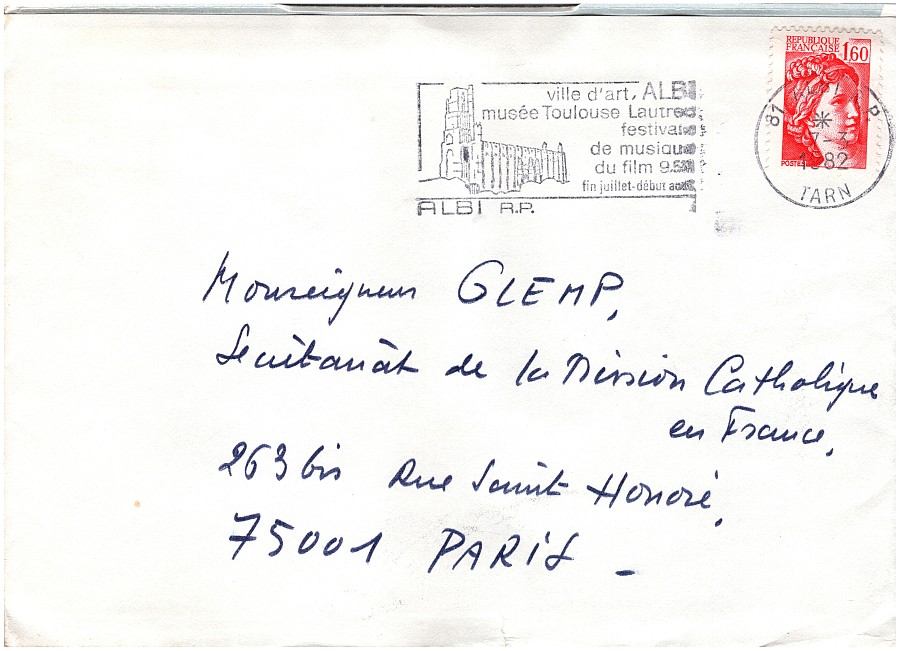 ville d'art, ALBI
musée Toulouse Lautrec
festivals
de musique
du film 9.5
fin juillet-début août
ALBI R.P.
REPUBLIQUE
FRANÇAISE
1,60
POSTES
81
R.P.
7-3
1982
TARN
Monseigneur GLEMP,
Secrétariat de la Mission Catholique
en France,
263 bis Rue Saint Honoré,
75001 PARIS –